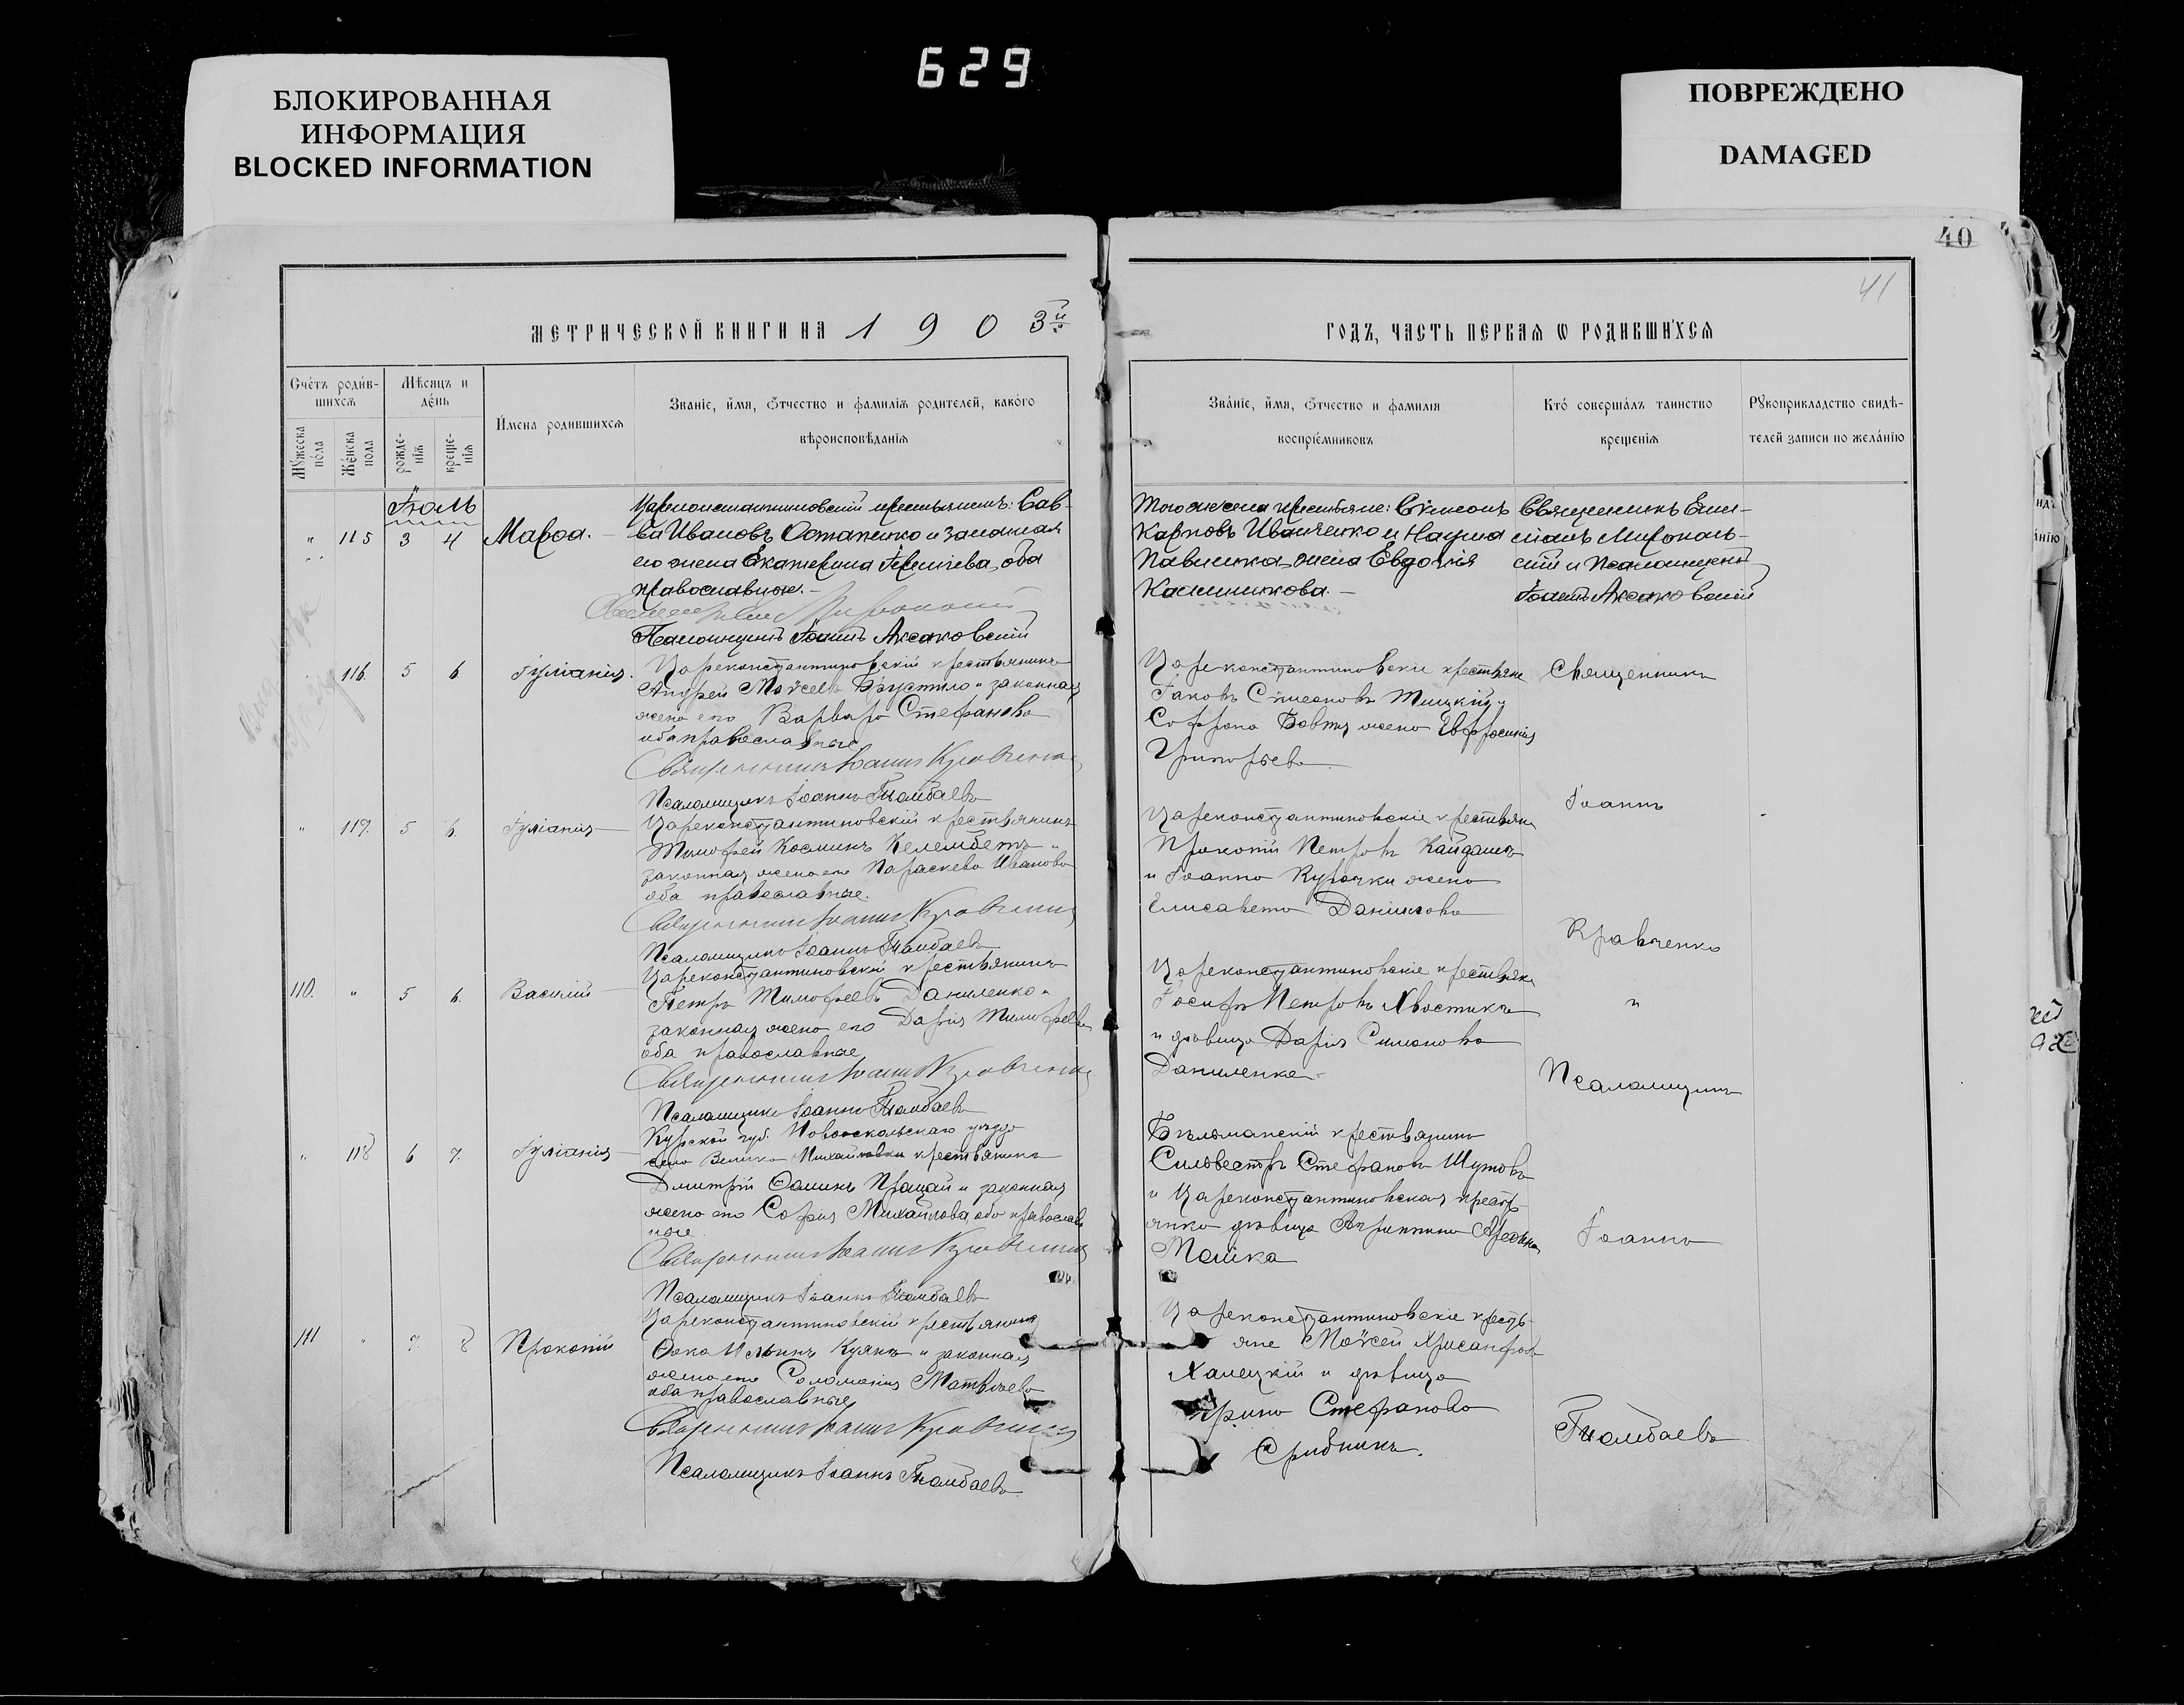 629
БЛОКИРОВАННАЯ
ИНФОРМАЦИЯ
BLOCKED INFORMATION
ПОВРЕЖДЕНО
DAMAGED
40
41
МЕТРИЧЕСКОЙ КНИГИ НА 1903й
ГОДЪ, ЧАСТЬ ПЕРВАЯ Ѡ РОДИВШИХСЯ
Счётъ родив-
шихся
Мѣсяцъ и
день
Мужеска
пола
Женска
пола
рожде-
нія
креще-
нія
Имена родившихся
Званіе, имя, отчество и фамилія родителей, какого
вѣроисповѣданія
Званіе, имя, отчество и фамилія
воспріемниковъ
Кто совершалъ таинство
крещенія
Рукоприкладство свидѣ-
телей записи по желанію
Іюль
" 115 3 4 Марѳа.
Цареконстантиновскій крестьянинъ: Сав-
ва Ивановъ Остапенко и законная
его жена Екатерина, оба
православные.
Псаломщикъ Іоаннъ Аксаковскій
Того же села крестьяне: Сѵмеонъ
Карповъ Иванченко и Наума
Павленка жена Евдокія
Калинникова.
Священникъ
и Псаломщикъ
Іоаннъ Аксаковскій
116. 5 6 Іуліанія.
Цареконстантиновскій крестьянинъ
Андрей Моѵсеевъ и законная
жена его Варвара Стефанова
оба православные
Священникъ Іоаннъ Кравченко
Псаломщикъ Іоаннъ
Цареконстантиновскіе крестьяне
Іаковъ Сѵмеоновъ и
Софрона Бовты жена Евфросинія
Григорьева
Священникъ
Іоаннъ
Кравченко
"
Псаломщикъ
Іоаннъ
" 117. 5 6. Іуліанія
Цареконстантиновскій крестьянинъ
Тимофей Косминъ Келембетъ и
законная жена его Параскева Иванова
оба православные.
Священникъ Іоаннъ Кравченко
Псаломщикъ Іоаннъ
Цареконстантиновскіе крестьяне
Прокопій Петровъ Кайдашъ
и Іоанна Курочки жена
Елисавета Даніилова
110. " 5 6. Василій
Цареконстантиновскій крестьянинъ
Петръ Тимофеевъ Даниленко и
законная жена его Дарія Тимофеева
оба православные
Священникъ Іоаннъ Кравченко
Псаломщикъ Іоаннъ
Цареконстантиновскіе крестьяне
Іосифъ Петровъ Хвостикъ
и дѣвица Дарія Симонова
Даниленко
" 118 6 7. Іуліанія
Курской губ. Новооскольскаго уѣзда
села Велико Михайловки крестьянинъ
Дмитрій Ѳоминъ Працай и законная
жена его Софія Михайлова оба православ
ные
Священникъ Іоаннъ Кравченко
Псаломщикъ Іоаннъ
Бѣльманскій крестьянинъ
Сильвестръ Стефановъ Шутовъ
и Цареконстантиновская кресть-
янка дѣвица Агриппина
111 " 7. 8 Прокопій
Цареконстантиновскій крестьянинъ
Ѳока Ильинъ Куянъ и законная
жена его Соломонія Матвѣева
оба православные
Священникъ Іоаннъ Кравченко
Псаломщикъ Іоаннъ
Цареконстантиновскіе кресть-
яне Моѵсей Хрисанфовъ
Халецкій и дѣвица
Стефанова